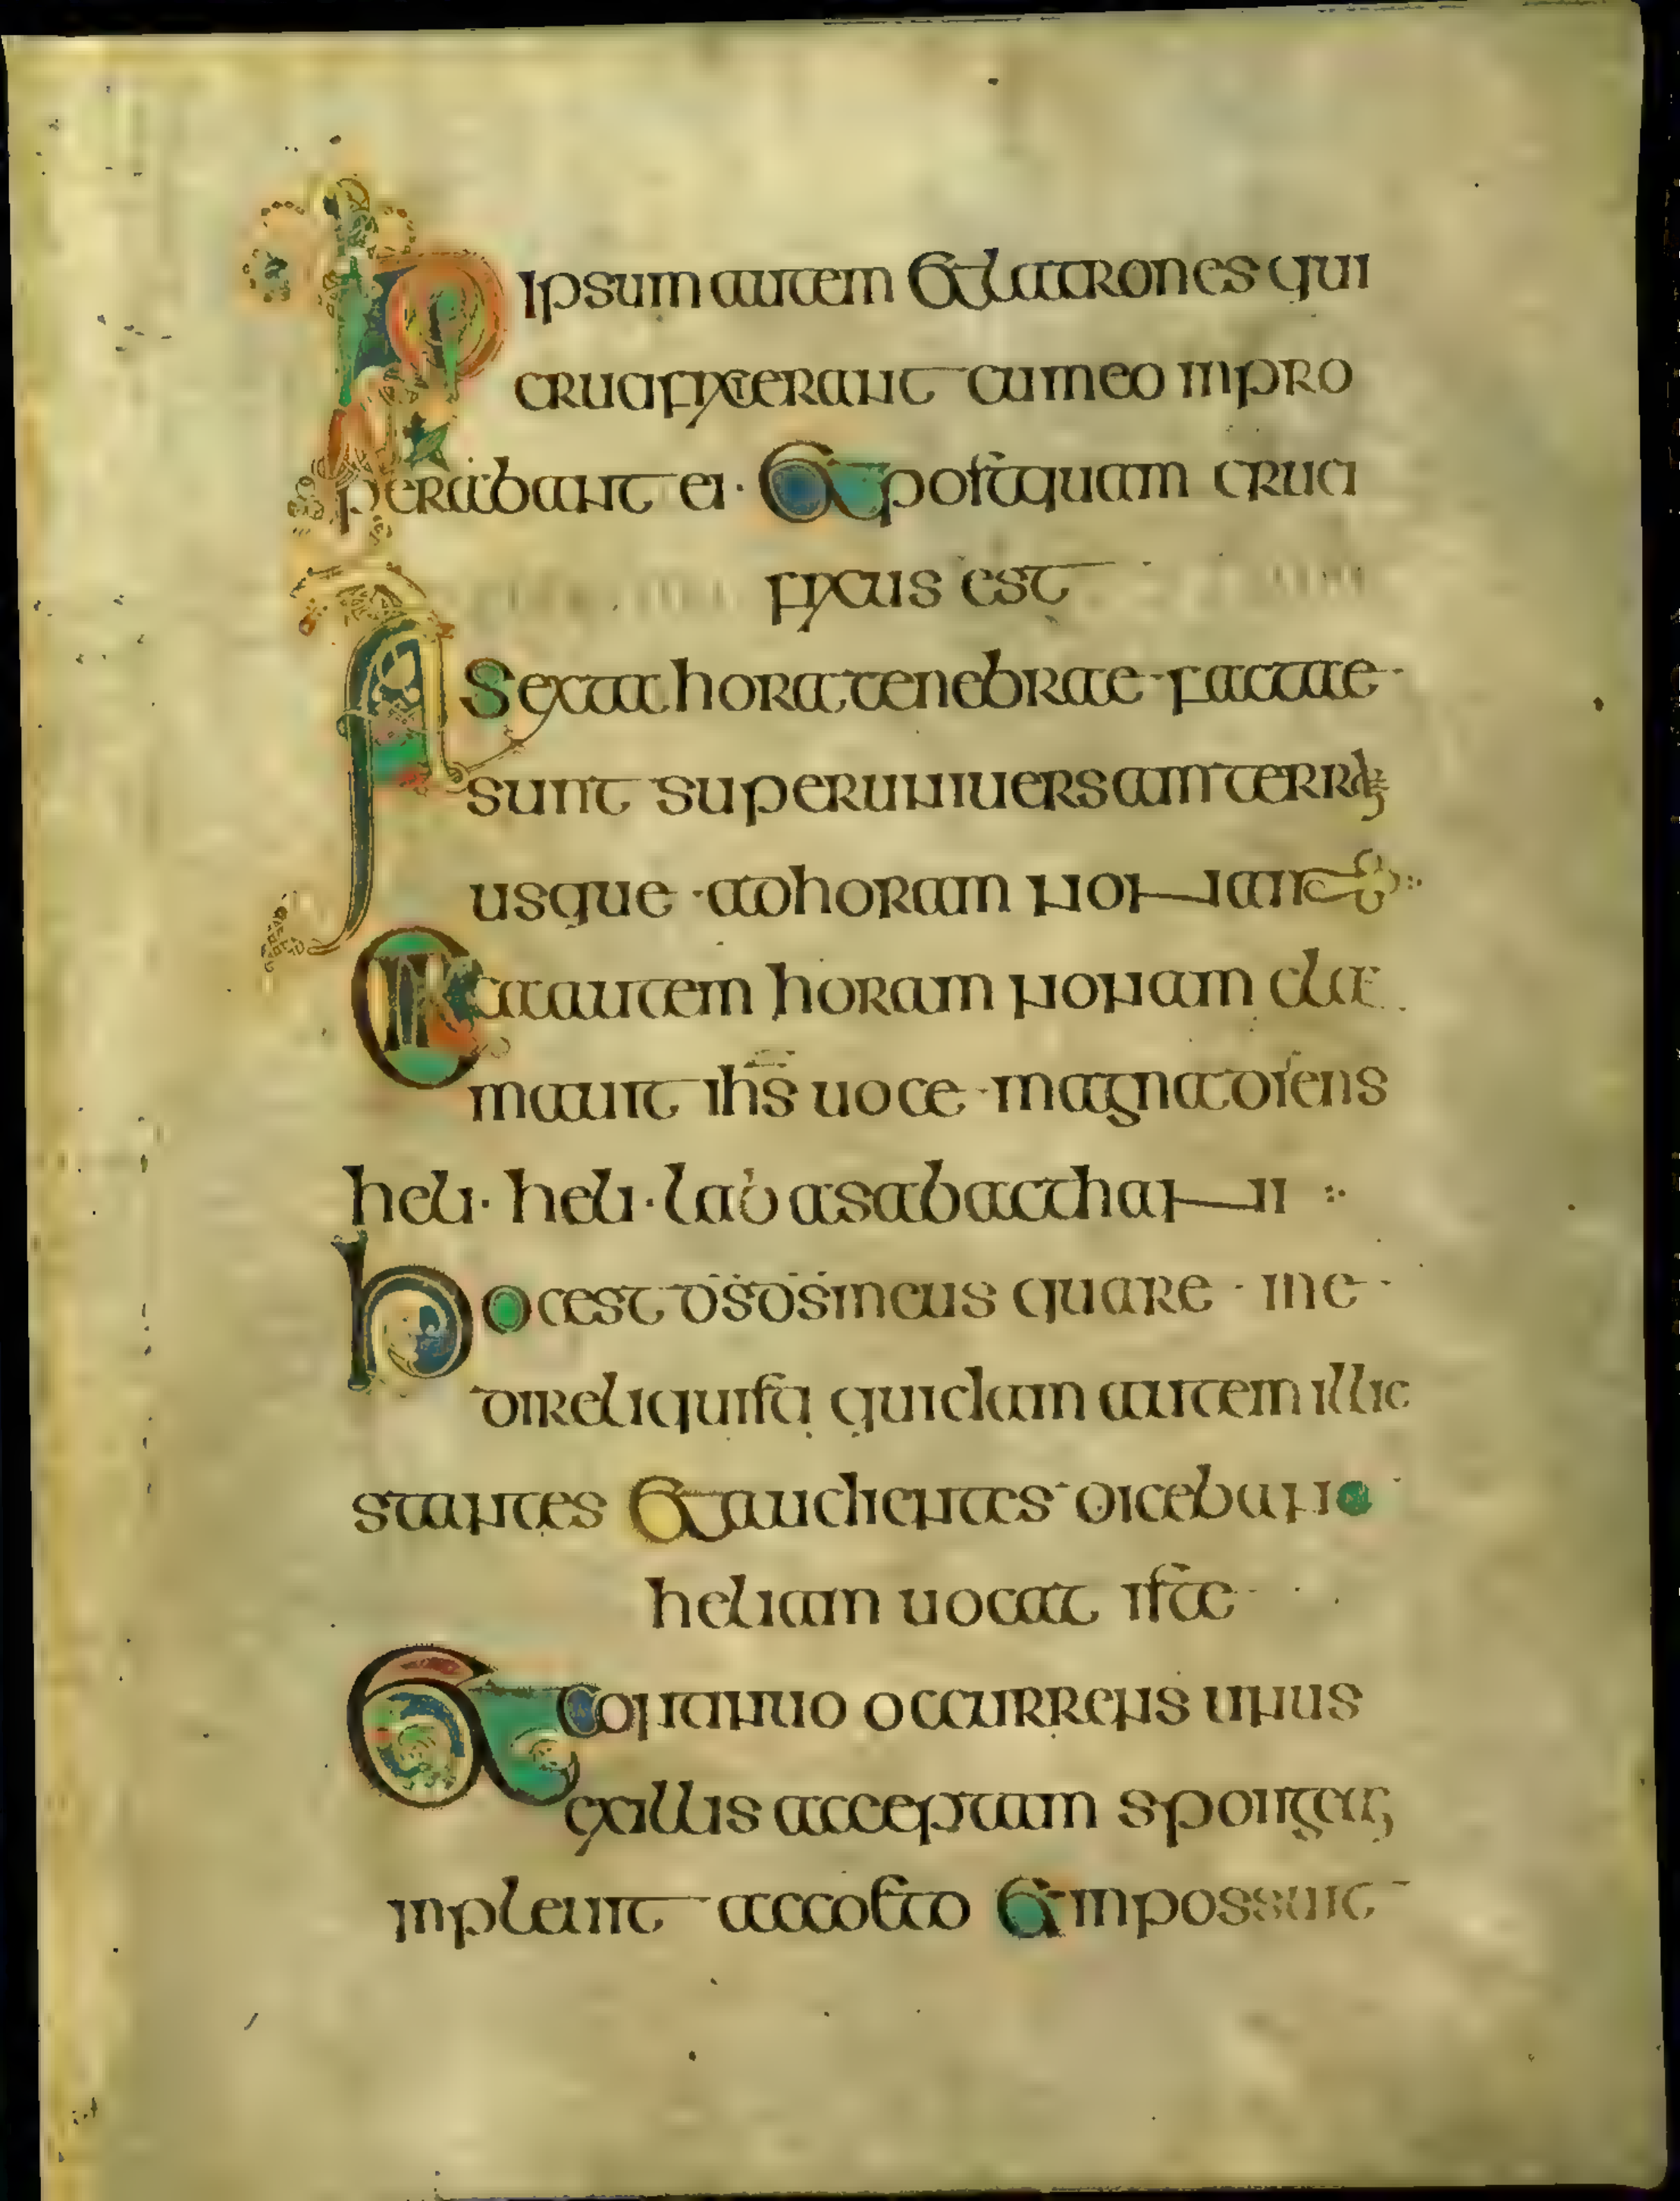 Ipsum autem et latrones qui
crucifixerant cum eo inpro
perabant ei · Et postquam cruci
fixus est
A Sexta hora tenebrae · factae ·
sunt super universam terram
usque · ad horam nonam
Circa autem horam nonam cla
mavit ihs voce · magna diens
heli · heli · laba sabacthani
hoc est ds ds meus quare · me ·
direliquisti quidam autem illic
stantes Et audientes dicebant
heliam vocat iste
Et Continuo occurrens unus
ex illis acceptam spongeam
inplevit acceto Et inpossuit